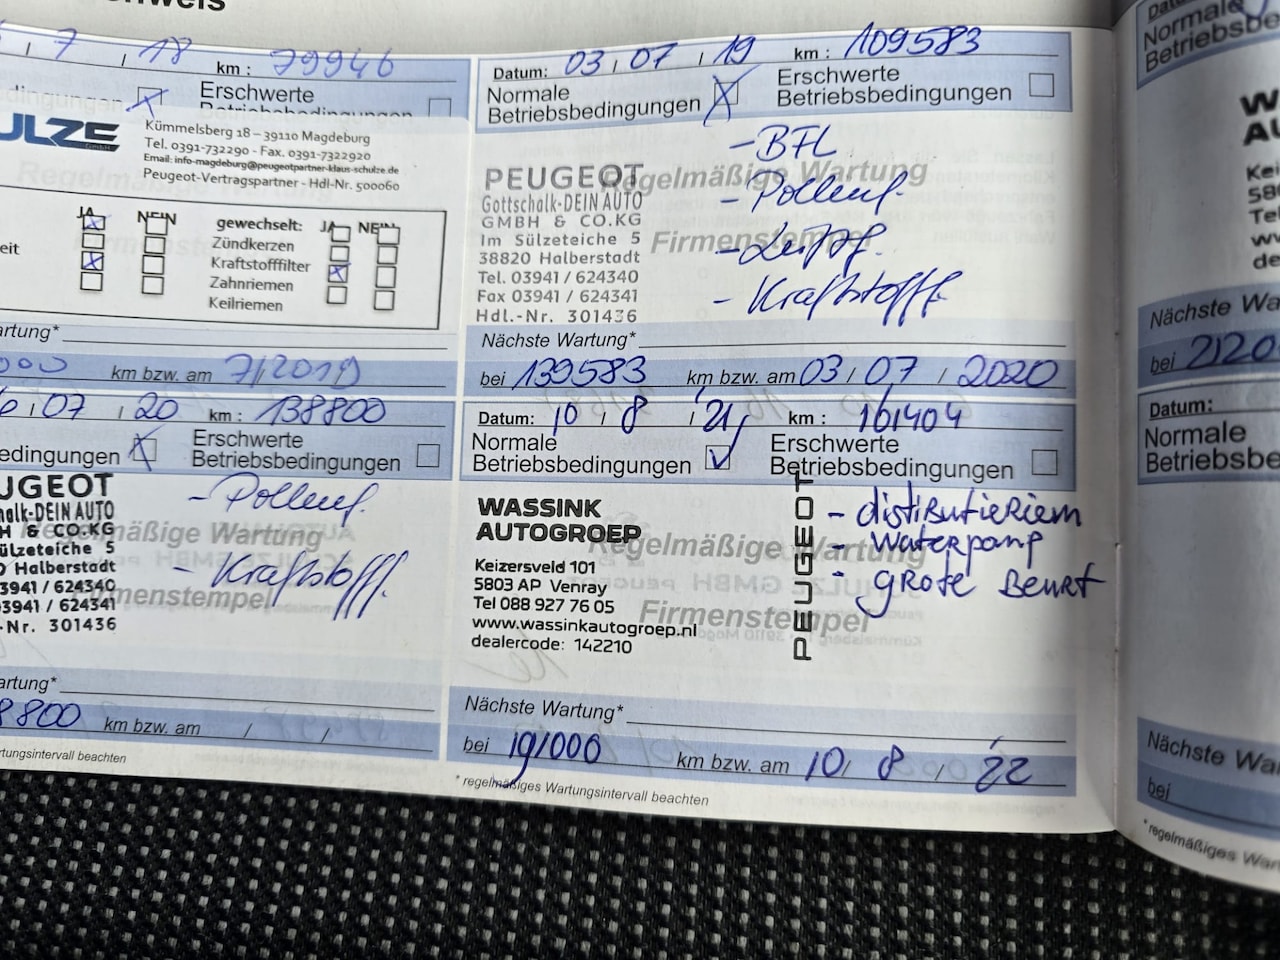 7 / 18 km : 79946
Erschwerte
Betriebsbedingungen
ULZE
Kümmelsberg 18 – 39110 Magdeburg
Tel. 0391-732290 - Fax. 0391-7322920
Email: info-magdeburg@peugeotpartner-klaus-schulze.de
Peugeot-Vertragspartner - Hdl-Nr. 500060
JA NEIN gewechselt: JA NEIN
Zündkerzen
eit Kraftstofffilter
Zahnriemen
Keilriemen
artung*
km bzw. am 7/2019
Datum: 03 / 07 / 19 km : 109583
Normale
Betriebsbedingungen
Erschwerte
Betriebsbedingungen
Regelmäßige Wartung
Firmenstempel
PEUGEOT
Gottschalk-DEIN AUTO
GMBH & CO.KG
Im Sülzeteiche 5
38820 Halberstadt
Tel. 03941 / 624340
Fax 03941 / 624341
Hdl.-Nr. 301436
- BFL
- Pollenf.
- Kraftstofff.
Nächste Wartung*
bei 139583 km bzw. am 03 / 07 / 2020
07 / 20 km : 138800
edingungen
Erschwerte
Betriebsbedingungen
UGEOT
alk-DEIN AUTO
H & CO.KG
ülzeteiche 5
Halberstadt
3941 / 624340
3941 / 624341
-Nr. 301436
mäßige Wartung
menstempel
- Pollenf.
- Kraftstofff.
artung*
8800 km bzw. am / /
rtungsintervall beachten
Datum: 10 / 8 / 21 km : 161404
Normale
Betriebsbedingungen
Erschwerte
Betriebsbedingungen
WASSINK
AUTOGROEP
Keizersveld 101
5803 AP Venray
Tel 088 927 76 05
www.wassinkautogroep.nl
dealercode: 142210
PEUGEOT
Regelmäßige Wartung
Firmenstempel
- distributieriem
- waterpomp
- grote Beurt
Nächste Wartung*
bei 191000 km bzw. am 10 / 8 / 22
* regelmäßiges Wartungsintervall beachten
Normale
Betriebsbe
W
AU
Kei
580
Tel
ww
de
Nächste Wa
bei 2120
Datum:
Normale
Betriebsbe
Nächste Wa
bei
* regelmäßiges War